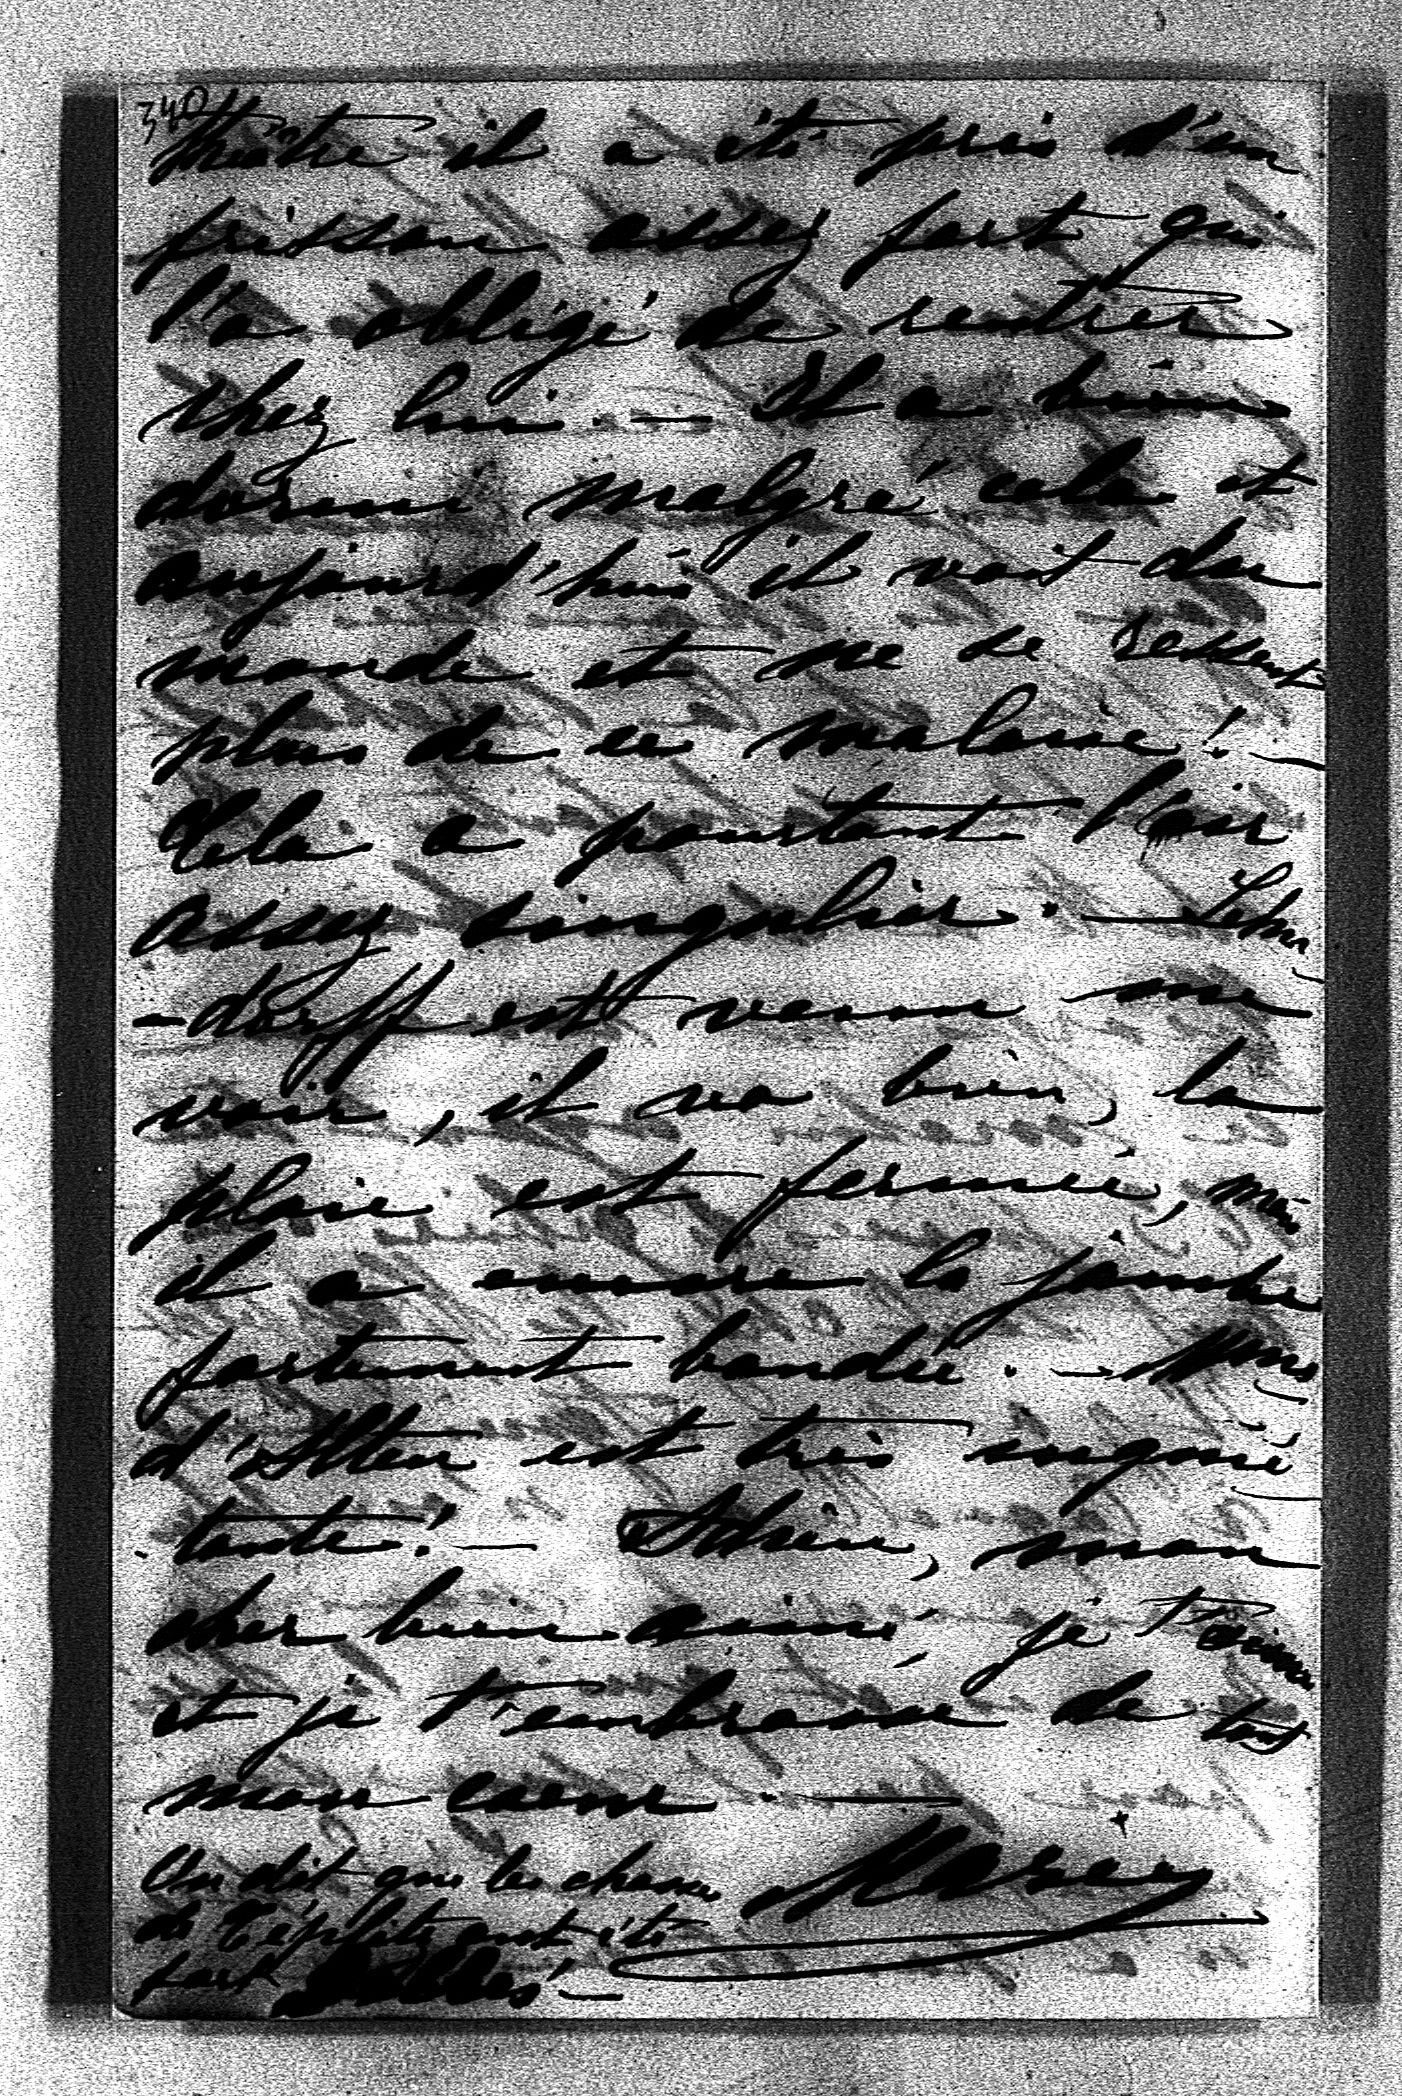 340
théâtre il a été pris d'un
frisson assez fort qui
l'a obligé de rentrer
chez lui. — Il a bien
dormi malgré cela et
aujourd'hui il voit du
monde et ne se ressent
plus de ce malaise! —
Cela a pourtant l'air
assez singulier. — Lehn
-dorff est venu me
voir, il va bien, la
plaie est fermée, mais
il a encore la jambe
fortement bandée. — Mme
d'Alten est très inquié
tante! — Adieu, mon
cher bien aimé, je t'aime
et je t'embrasse de tout
mon coeur. —
Marie
On dit que les chasses
de Téplitz ont été
fort belles! —